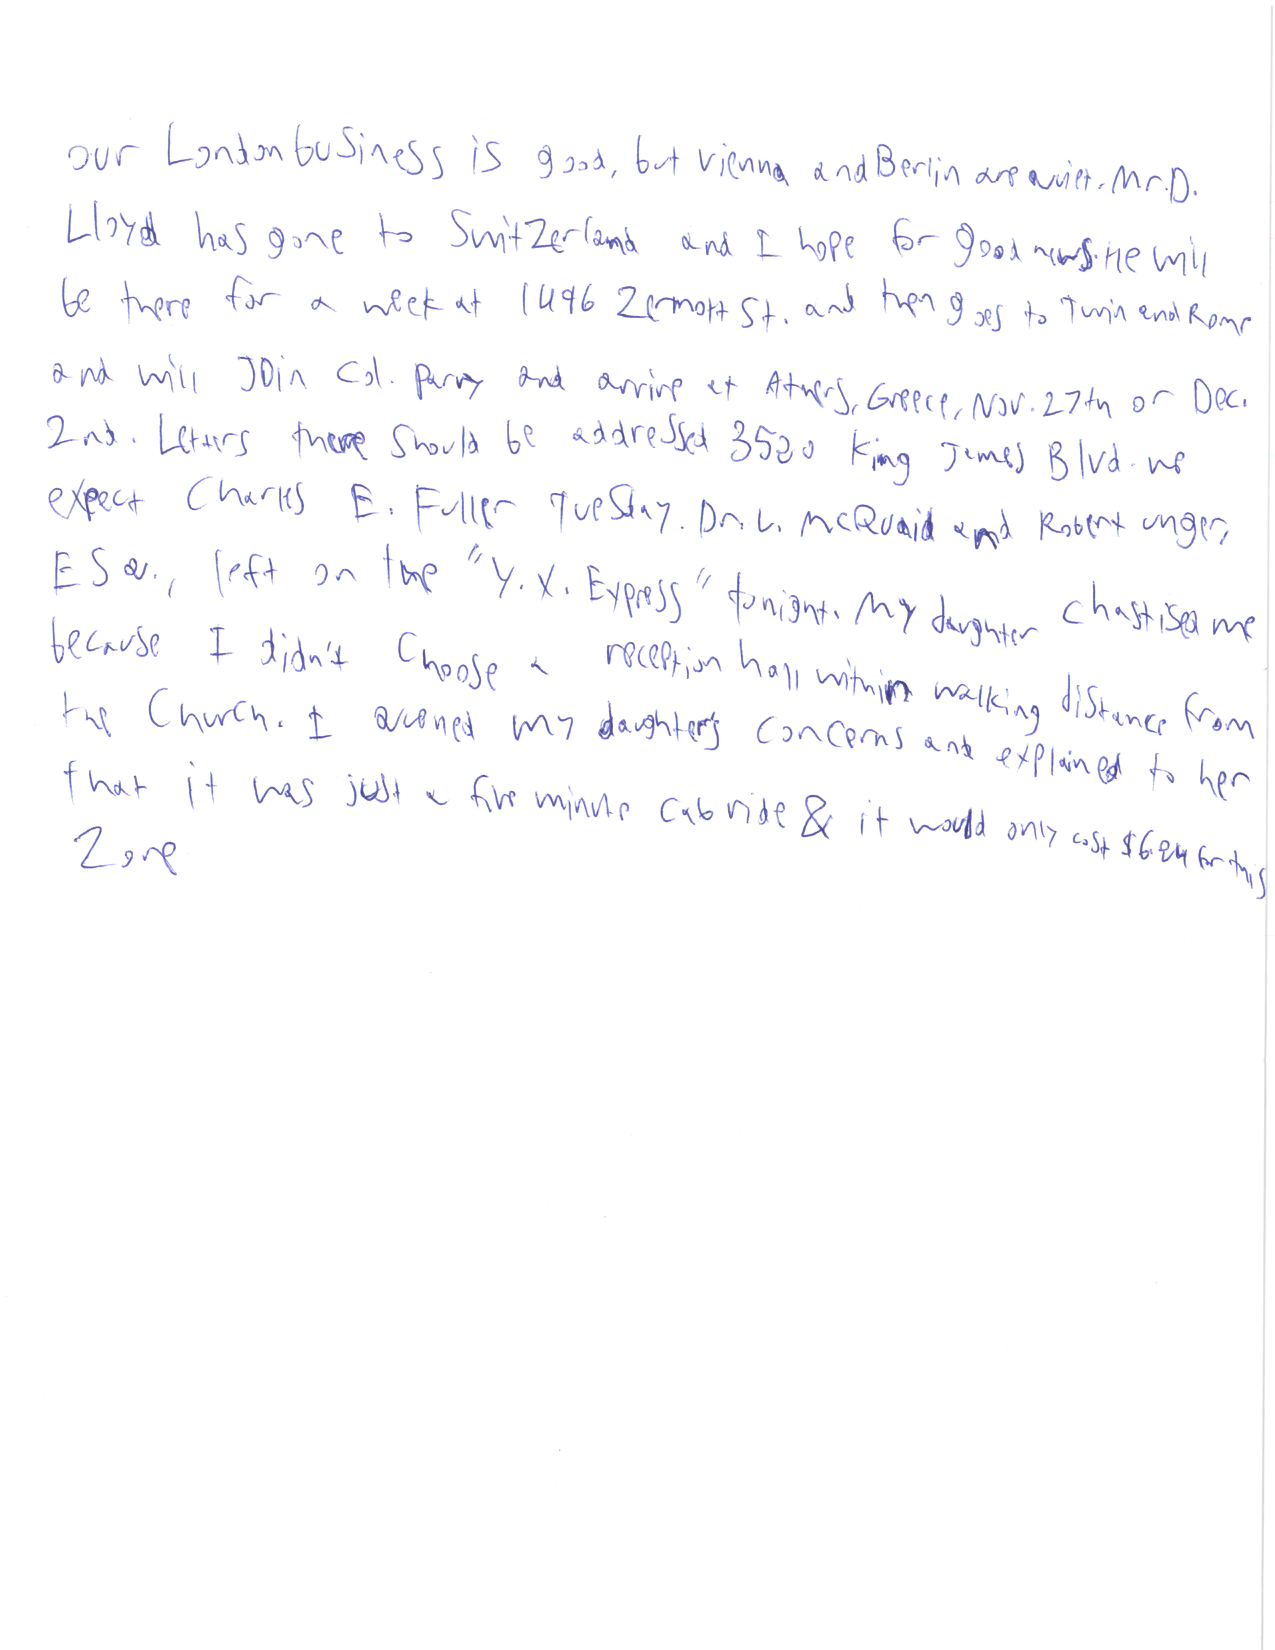 our London business is good, but Vienna and Berlin are quiet. Mr. D.
Lloyd has gone to Switzerland and I hope for good news. He will
be there for a week at 1496 Zermott St. and then goes to Turin and Rome
and will Join Col. Parry and arrive at Athens, Greece, Nov. 27th or Dec.
2nd. Letters there should be addressed 3520 King James Blvd. we
expect Charles E. Fuller Tuesday. Dr. L. McQuaid and Robert unger,
ESQ., left on the "Y.X. Express" tonight. My daughter chastised me
because I didn't choose a reception hall within walking distance from
the Church. I quened my daughter's concerns and explained to her
that it was just a five minute cab ride & it would only cost $6.84 for this
Zone